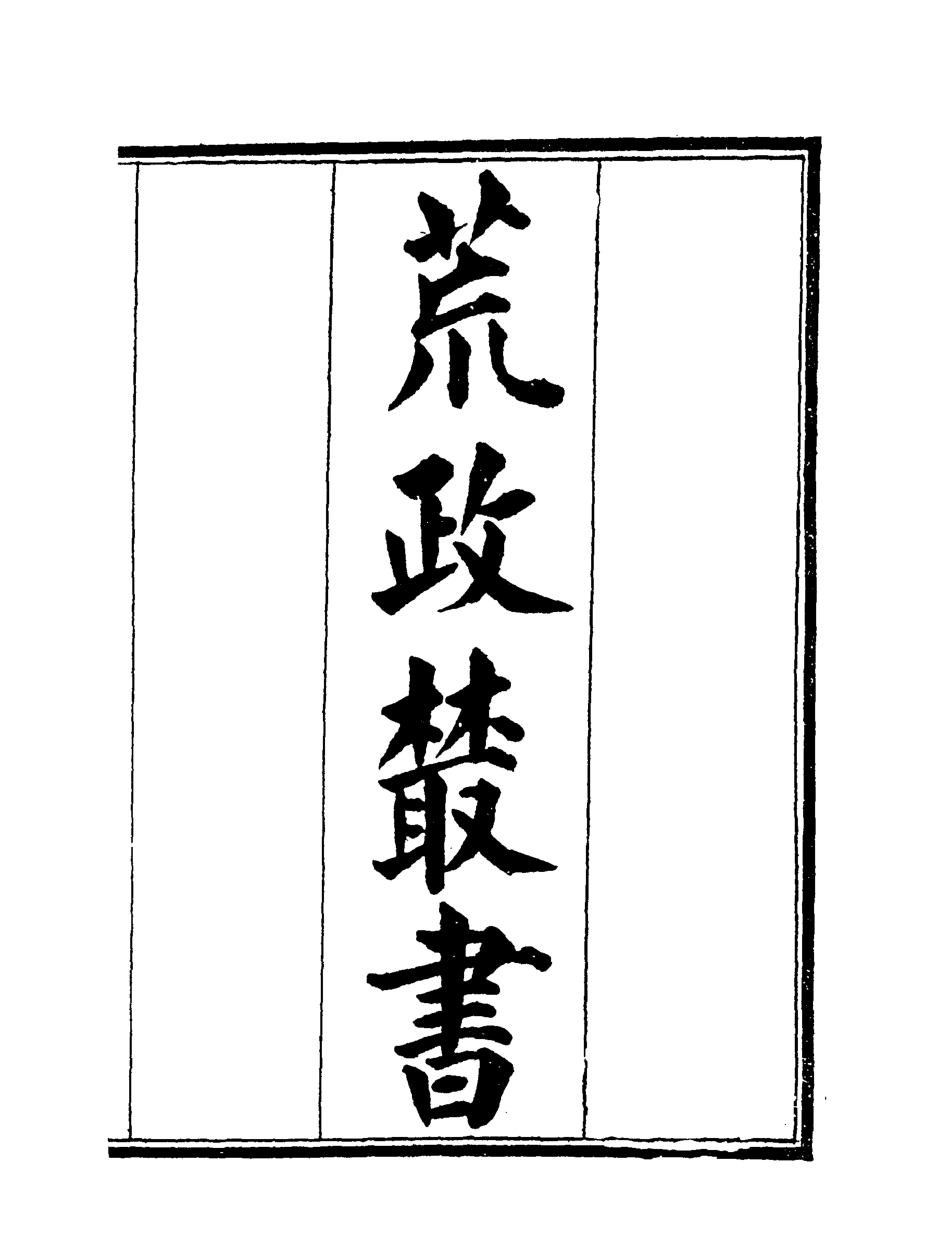 荒政叢書